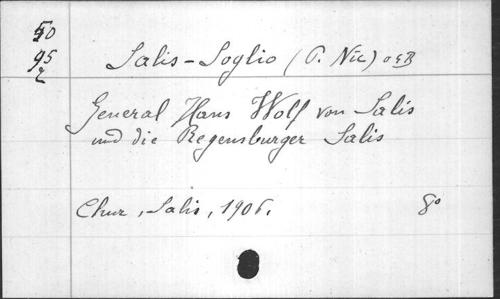 50
95
2
Salis-Soglio (P. Nic) OSB
General Hans Wolf von Salis
und die Regensburger Salis
Chur, Salis, 1906. 8°